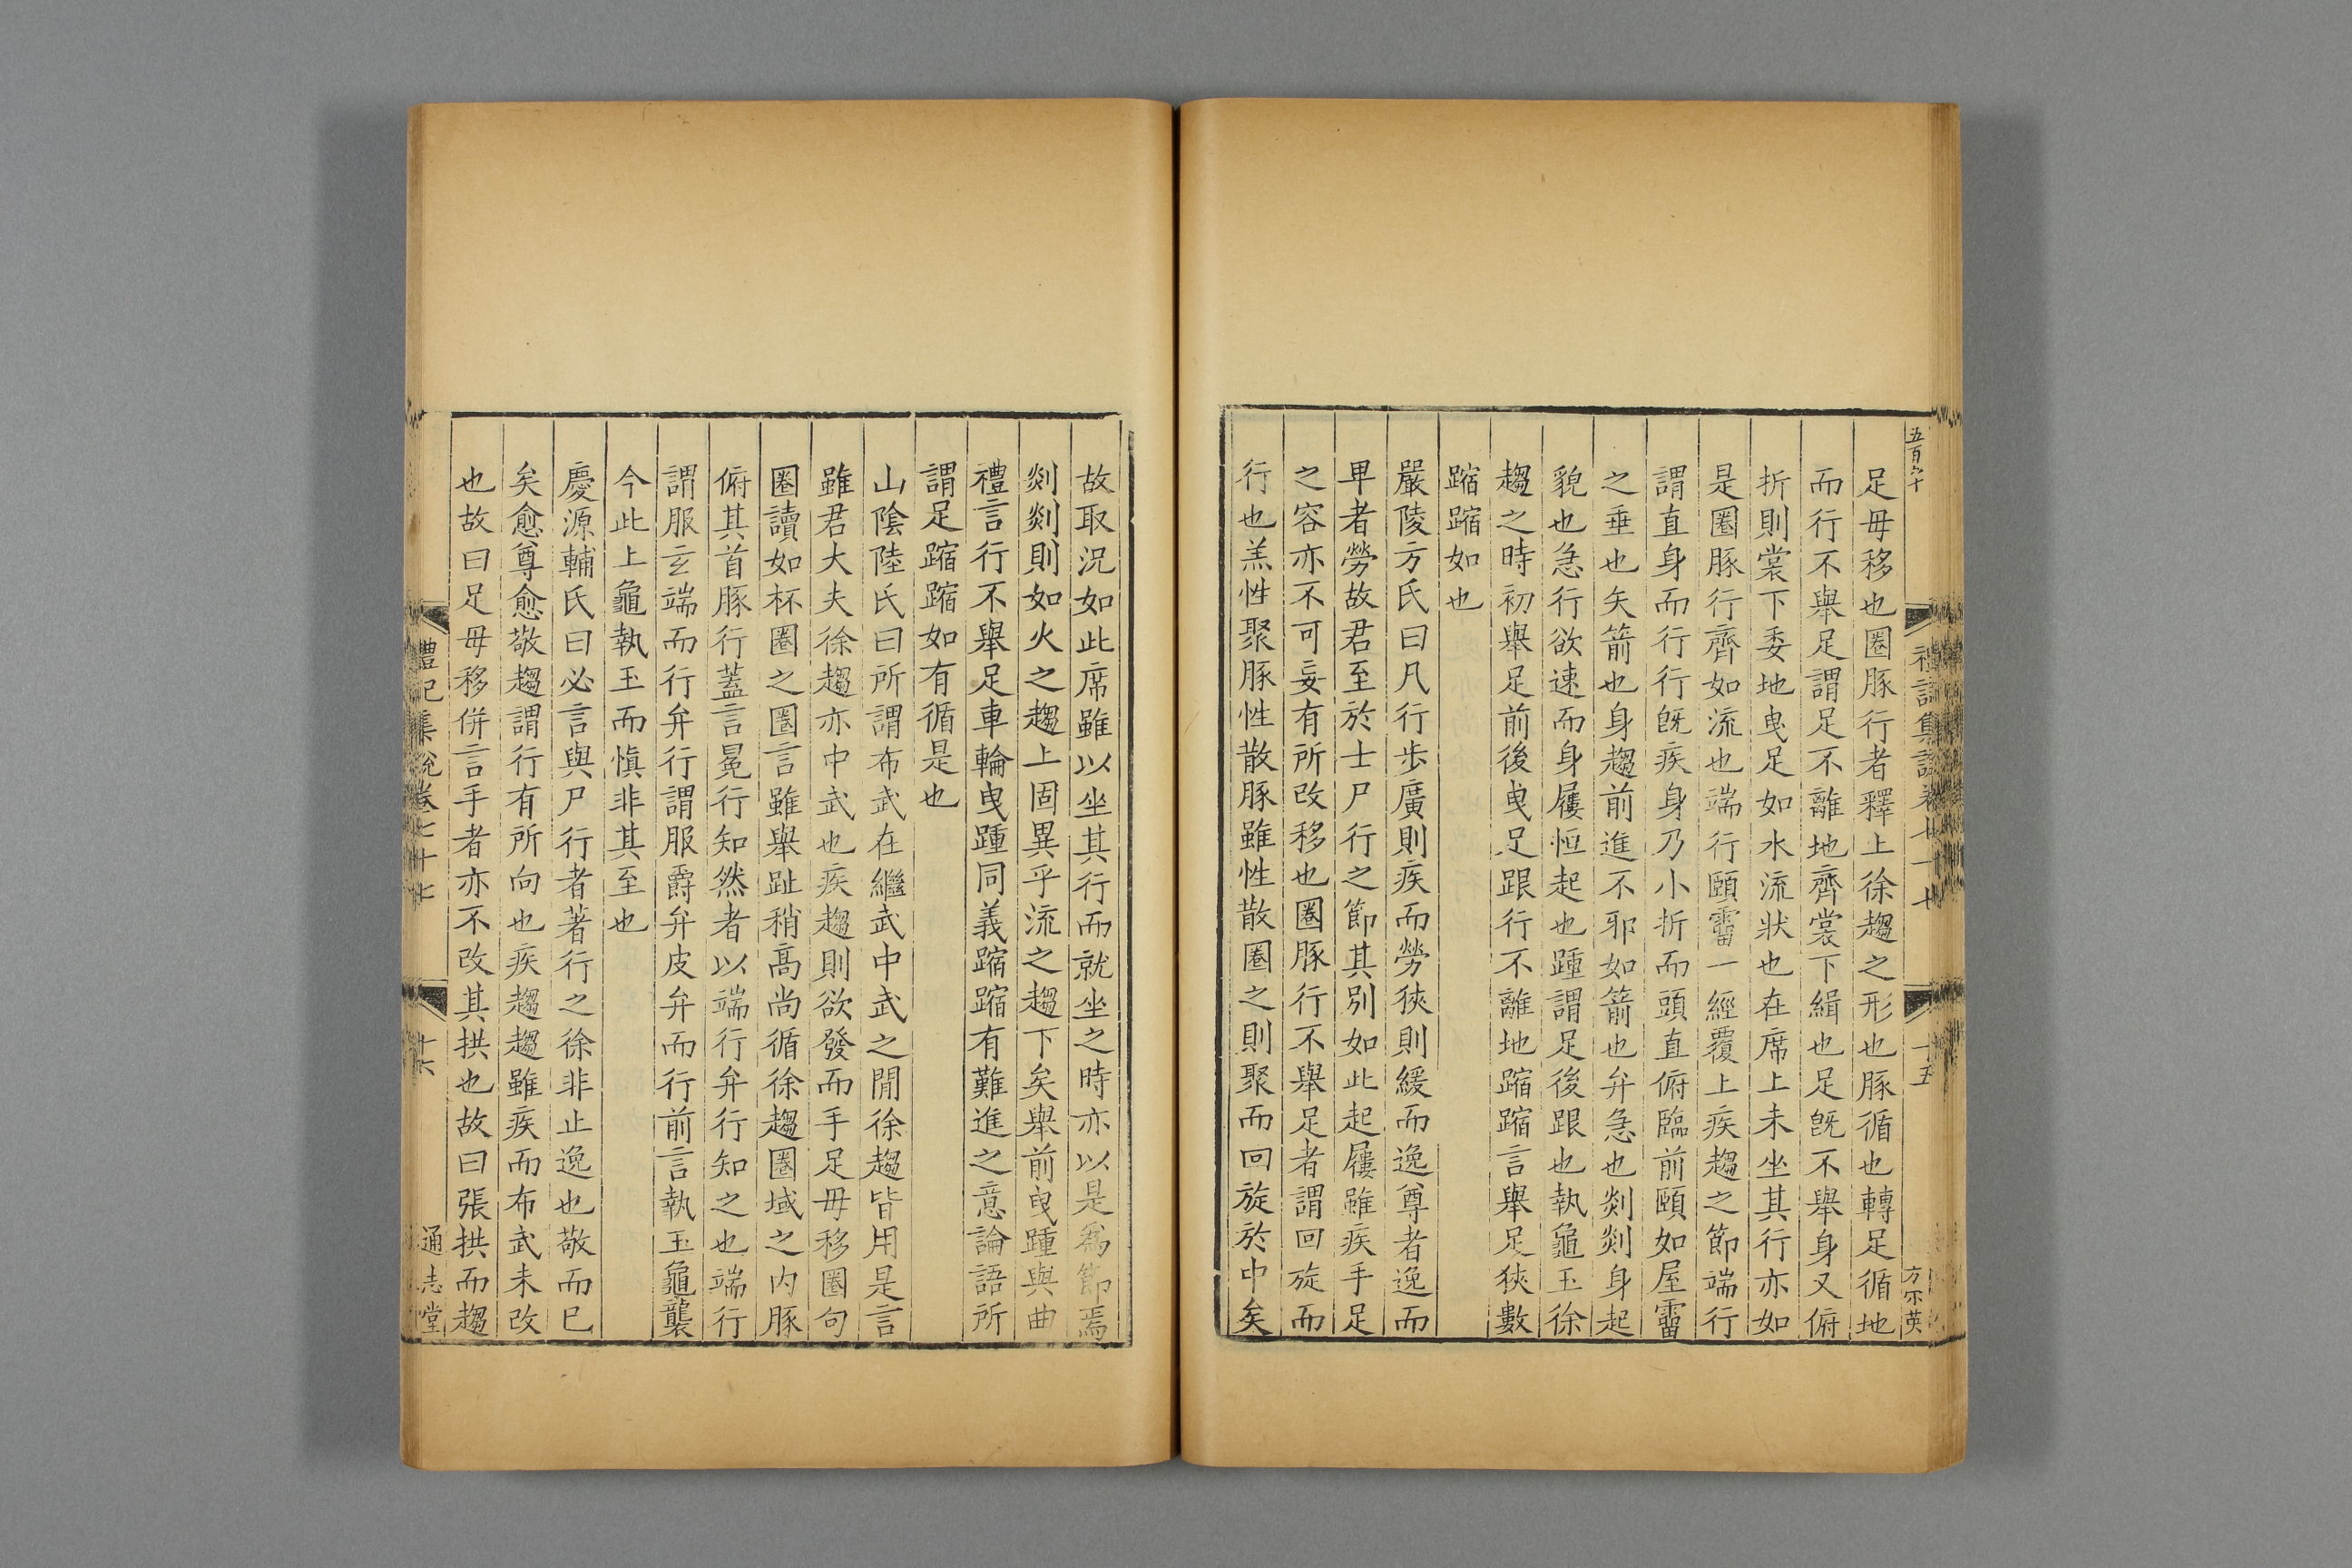 五百六十
禮記集說卷七十七
十五
方不英
足毋移也圈豚行者釋上徐趨之形也豚循也轉足循地
而行不舉足謂足不離地齊裳下緝也足旣不舉身又俯
折則裳下委地曳足如水流狀也在席上未坐其行亦如
是圈豚行齊如流也端行頤霤一經覆上疾趨之節端行
謂直身而行行旣疾身乃小折而頭直俯臨前頤如屋霤
之垂也矢箭也身趨前進不邪如箭也弁急也剡剡身起
貌也急行欲速而身屨恒起也踵謂足後跟也執龜玉徐
趨之時初舉足前後曳足跟行不離地蹜蹜言舉足狹數
蹜蹜如也
嚴陵方氏曰凡行步廣則疾而勞狹則緩而逸尊者逸而
卑者勞故君至於士尸行之節其別如此起屨雖疾手足
之容亦不可妄有所改移也圈豚行不舉足者謂回旋而
行也羔性聚豚性散豚雖性散圈之則聚而回旋於中矣
故取況如此席雖以坐其行而就坐之時亦以是爲節焉
剡剡則如火之趨上固異乎流之趨下矣舉前曳踵與曲
禮言行不舉足車輪曳踵同義蹜蹜有難進之意論語所
謂足蹜蹜如有循是也
山陰陸氏曰所謂布武在繼武中武之閒徐趨皆用是言
雖君大夫徐趨亦中武也疾趨則欲發而手足毋移圈句
圈讀如杯圈之圈言雖舉趾稍高尚循徐趨圈域之內豚
俯其首豚行蓋言冕行知然者以端行弁行知之也端行
謂服玄端而行弁行謂服爵弁皮弁而行前言執玉龜襲
今此上龜執玉而愼非其至也
慶源輔氏曰必言與尸行者著行之徐非止逸也敬而已
矣愈尊愈敬趨謂行有所向也疾趨趨雖疾而布武未改
也故曰足毋移併言手者亦不改其拱也故曰張拱而趨
禮記集說卷七十七
十六
通志堂